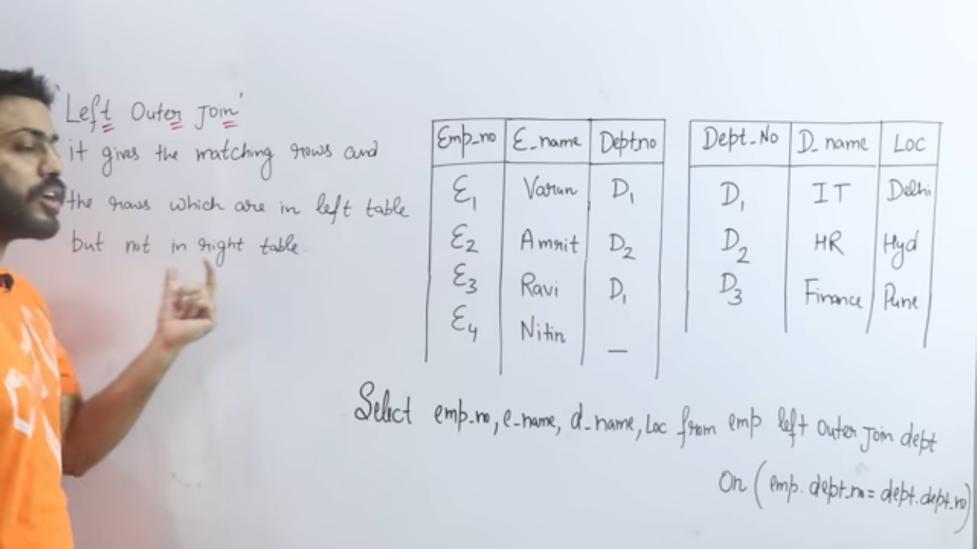 'Left Outer Join'
it gives the matching rows and
the rows which are in left table
but not in right table.
Emp_no E_name Dept no
E1 Varun D1
E2 Amrit D2
E3 Ravi D1
E4 Nitin —
Dept_No D_name Loc
D1 IT Delhi
D2 HR Hyd
D3 Finance Pune
Select emp_no, e_name, d_name, Loc from emp left outer join dept
On (emp.dept_no = dept.dept_no)